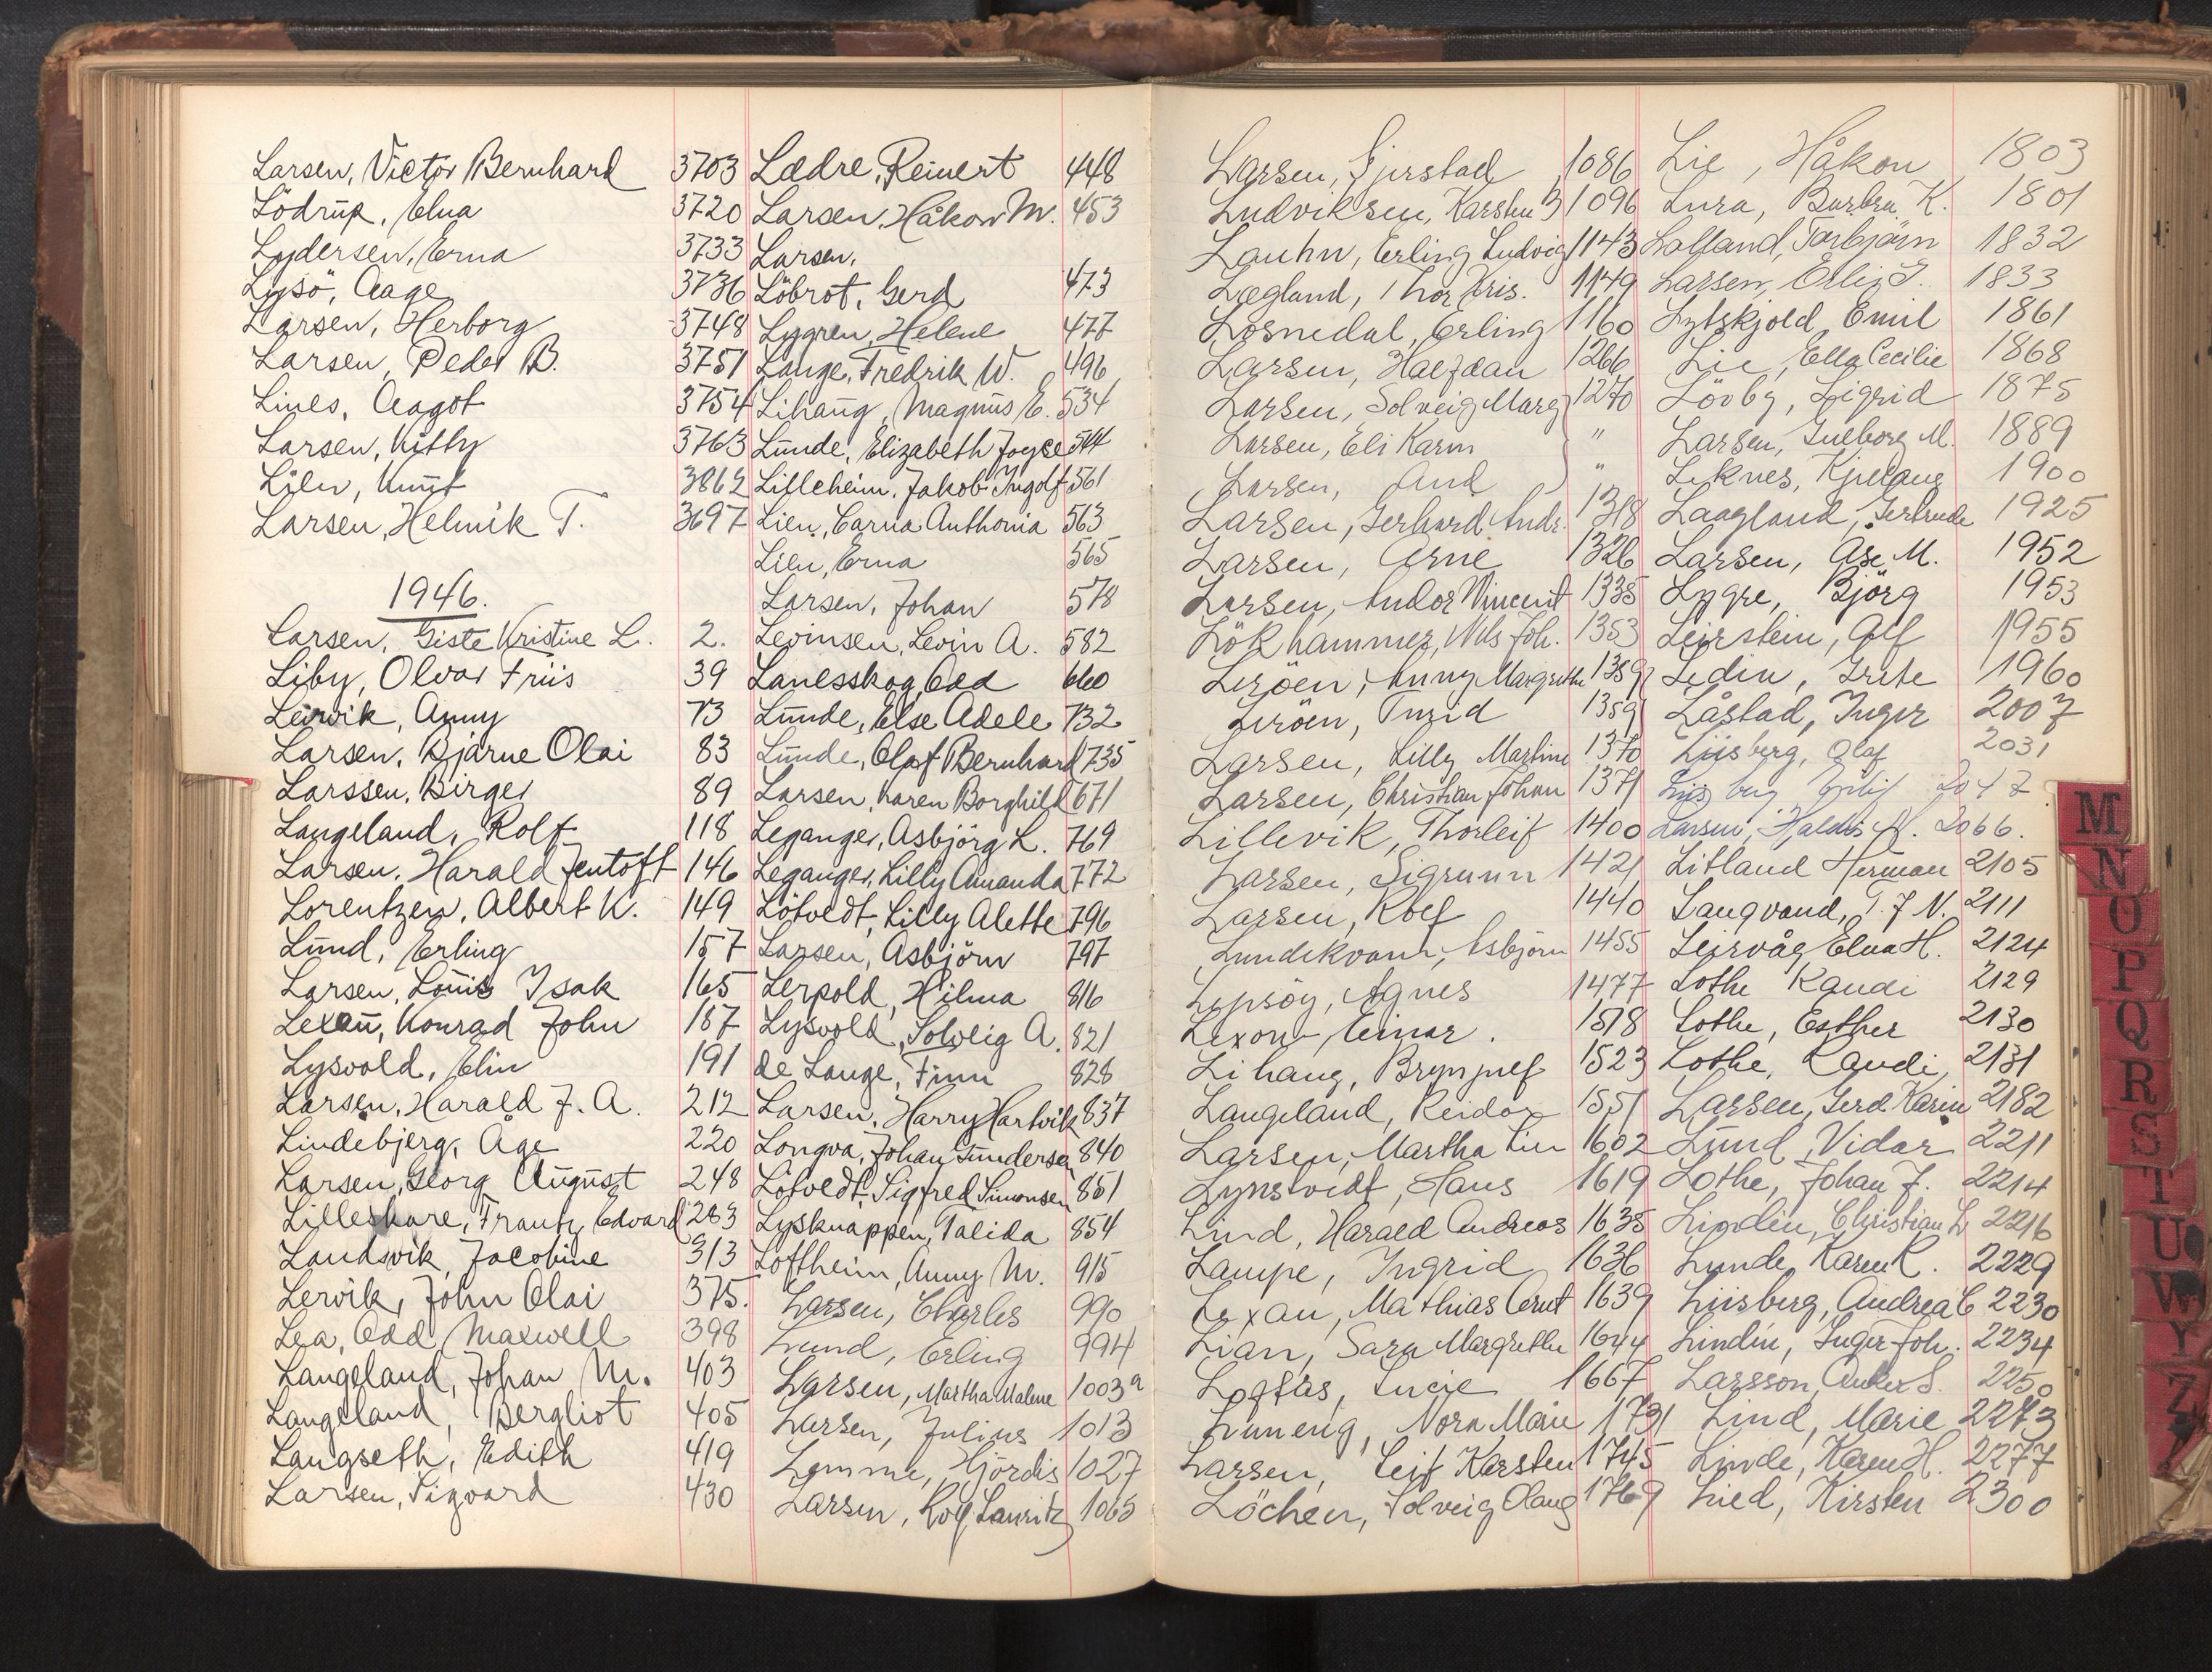 Larsen, Victor Bernhard 3703
Lödrup, Elna 3720
Lydersen, Erna 3733
Lysö, Aage 3736
Larsen, Herborg 3748
Larsen, Peder B. 3751
Lines, Aagot 3754
Larsen, Kitty 3763
Lien, Knut 3862
Larsen, Helmik T. 3697
1946.
Larsen, Giste Kristine L. 2.
Liby, Olvar Friis 39
Leirvik, Anny 73
Larsen, Bjarne Olai 83
Larssen, Birger 89
Langeland, Rolf 118
Larsen, Harald Jentoft 146
Lorentzen, Albert K. 149
Lund, Erling 157
Larsen, Louis Isak 165
Lexau, Konrad John 187
Lysvold, Elin 191
Larsen, Harald J. A. 212
Lindebjerg, Åge 220
Larsen, Georg August 248
Lilleskare, Frantz Edvard 283
Landsvik, Jacobine 313
Lervik, John Olai 375.
Lea, Odd Maxwell 398
Langeland, Johan M. 403
Langeland, Bergliot 405
Langseth, Edith 419
Larsen, Sigvard 430
Lædre, Reinert 448
Larsen, Håkon M. 453
Larsen,
Löbrot, Gerd 473
Lygren, Helene 477
Lange, Fredrik W. 496
Lihaug, Magnus E. 534
Lunde, Elizabeth Joyce 544
Lilleheim, Jakob Ingolf 561
Lien, Carna Anthonia 563
Lien, Erna 565
Larsen, Johan 578
Levinsen, Levin A. 582
Lanesskog, Odd 660
Lunde, Else Adele 732
Lunde, Olaf Bernhard 735
Larsen, Karen Borghild 671
Leganger, Asbjörg L. 769
Leganger, Lilly Amanda 772
Lötvedt, Lilly Alette 796
Larsen, Asbjörn 797
Lerpold, Hilma 816
Lysvold, Solveig A. 821
de Lange, Finn 828
Larsen, Harry Hartvik 837
Longva, Johan Gundersen 840
Lötvedt, Sigfred Simonsen 851
Lysknappen, Talida 854
Loftheim, Anny M. 915
Larsen, Charles 990
Lund, Erling 994
Larsen, Martha Malene 1003a
Larsen, Julius 1013
Lomme, Hjördis 1027
Larsen, Rolf Lauritz 1065
Larsen, Gjerstad 1086
Ludviksen, Karsten B 1096
Lauhn, Erling Ludvig 1143
Lægland, Thor Kris. 1149
Losnedal, Erling 1160
Larsen, Halfdan 1266
Larsen, Solveig Marg 1270
Larsen, Eli Karin "
Larsen, Aud "
Larsen, Gerhard Andr. 1318
Larsen, Arne 1326
Larsen, Andor Vincent 1335
Lökhammer, Nils Joh. 1353
Leröen, Anny Margrethe 1359
Leröen, Turid 1359
Larsen, Lilly Martine 1370
Larsen, Christian Johan 1371
Lillevik, Thorleif 1400
Larsen, Sigrunn 1421
Larsen, Rolf 1440
Lundekvam, Asbjörn 1455
Lepsöy, Agnes 1477
Lexow, Einar. 1518
Lihaug, Brynjulf 1523
Langeland, Reidar 1551
Larsen, Martha Lien 1602
Lyngtvedt, Hans 1619
Lind, Harald Andreas 1635
Lampe, Ingrid 1636
Lexau, Mathias Arnt 1639
Lian, Sara Margrethe 1644
Loftås, Lucie 1667
Lunneng, Nora Marie 1731
Larsen, Leif Karsten 1745
Löchen, Solveig Olaug 1769
Lie, Håkon 1803
Lura, Barbra K. 1801
Lalland, Torbjörn 1832
Larsen, Erling 1833
Lytskjold, Emil 1861
Lie, Ella Cecilie 1868
Lövby, Sigrid 1875
Larsen, Ingeborg M. 1889
Leknes, Kjellaug 1900
Laagland, Gertrude 1925
Larsen, Åse M. 1952
Lygre, Björg 1953
Leirstein, Alf 1955
Ledin, Grete 1960
Låstad, Inger 2007
Liisberg, Olaf 2031
Liisberg 2047
Larsen, Haldis M. 2066.
Litland Herman 2105
Langvand, T. J N. 2111
Leirvåg Elna H. 2124
Lothe Randi 2129
Lothe, Esther 2130
Lothe, Randi, 2131
Larsen, Gerd Karin 2182
Lund, Vidar 2211
Lothe, Johan J. 2214
Lindin, Christian L 2216
Lunde, Karen K. 2229
Liisberg, Andrea C 2230
Lindin, Inger Joh. 2234
Larsson, Anker S. 2250
Lind, Marie 2273
Linde, Karen H. 2277
Lied, Kirsten 2300
M
N
O
P
Q
R
S
T
U
W
Y
Z